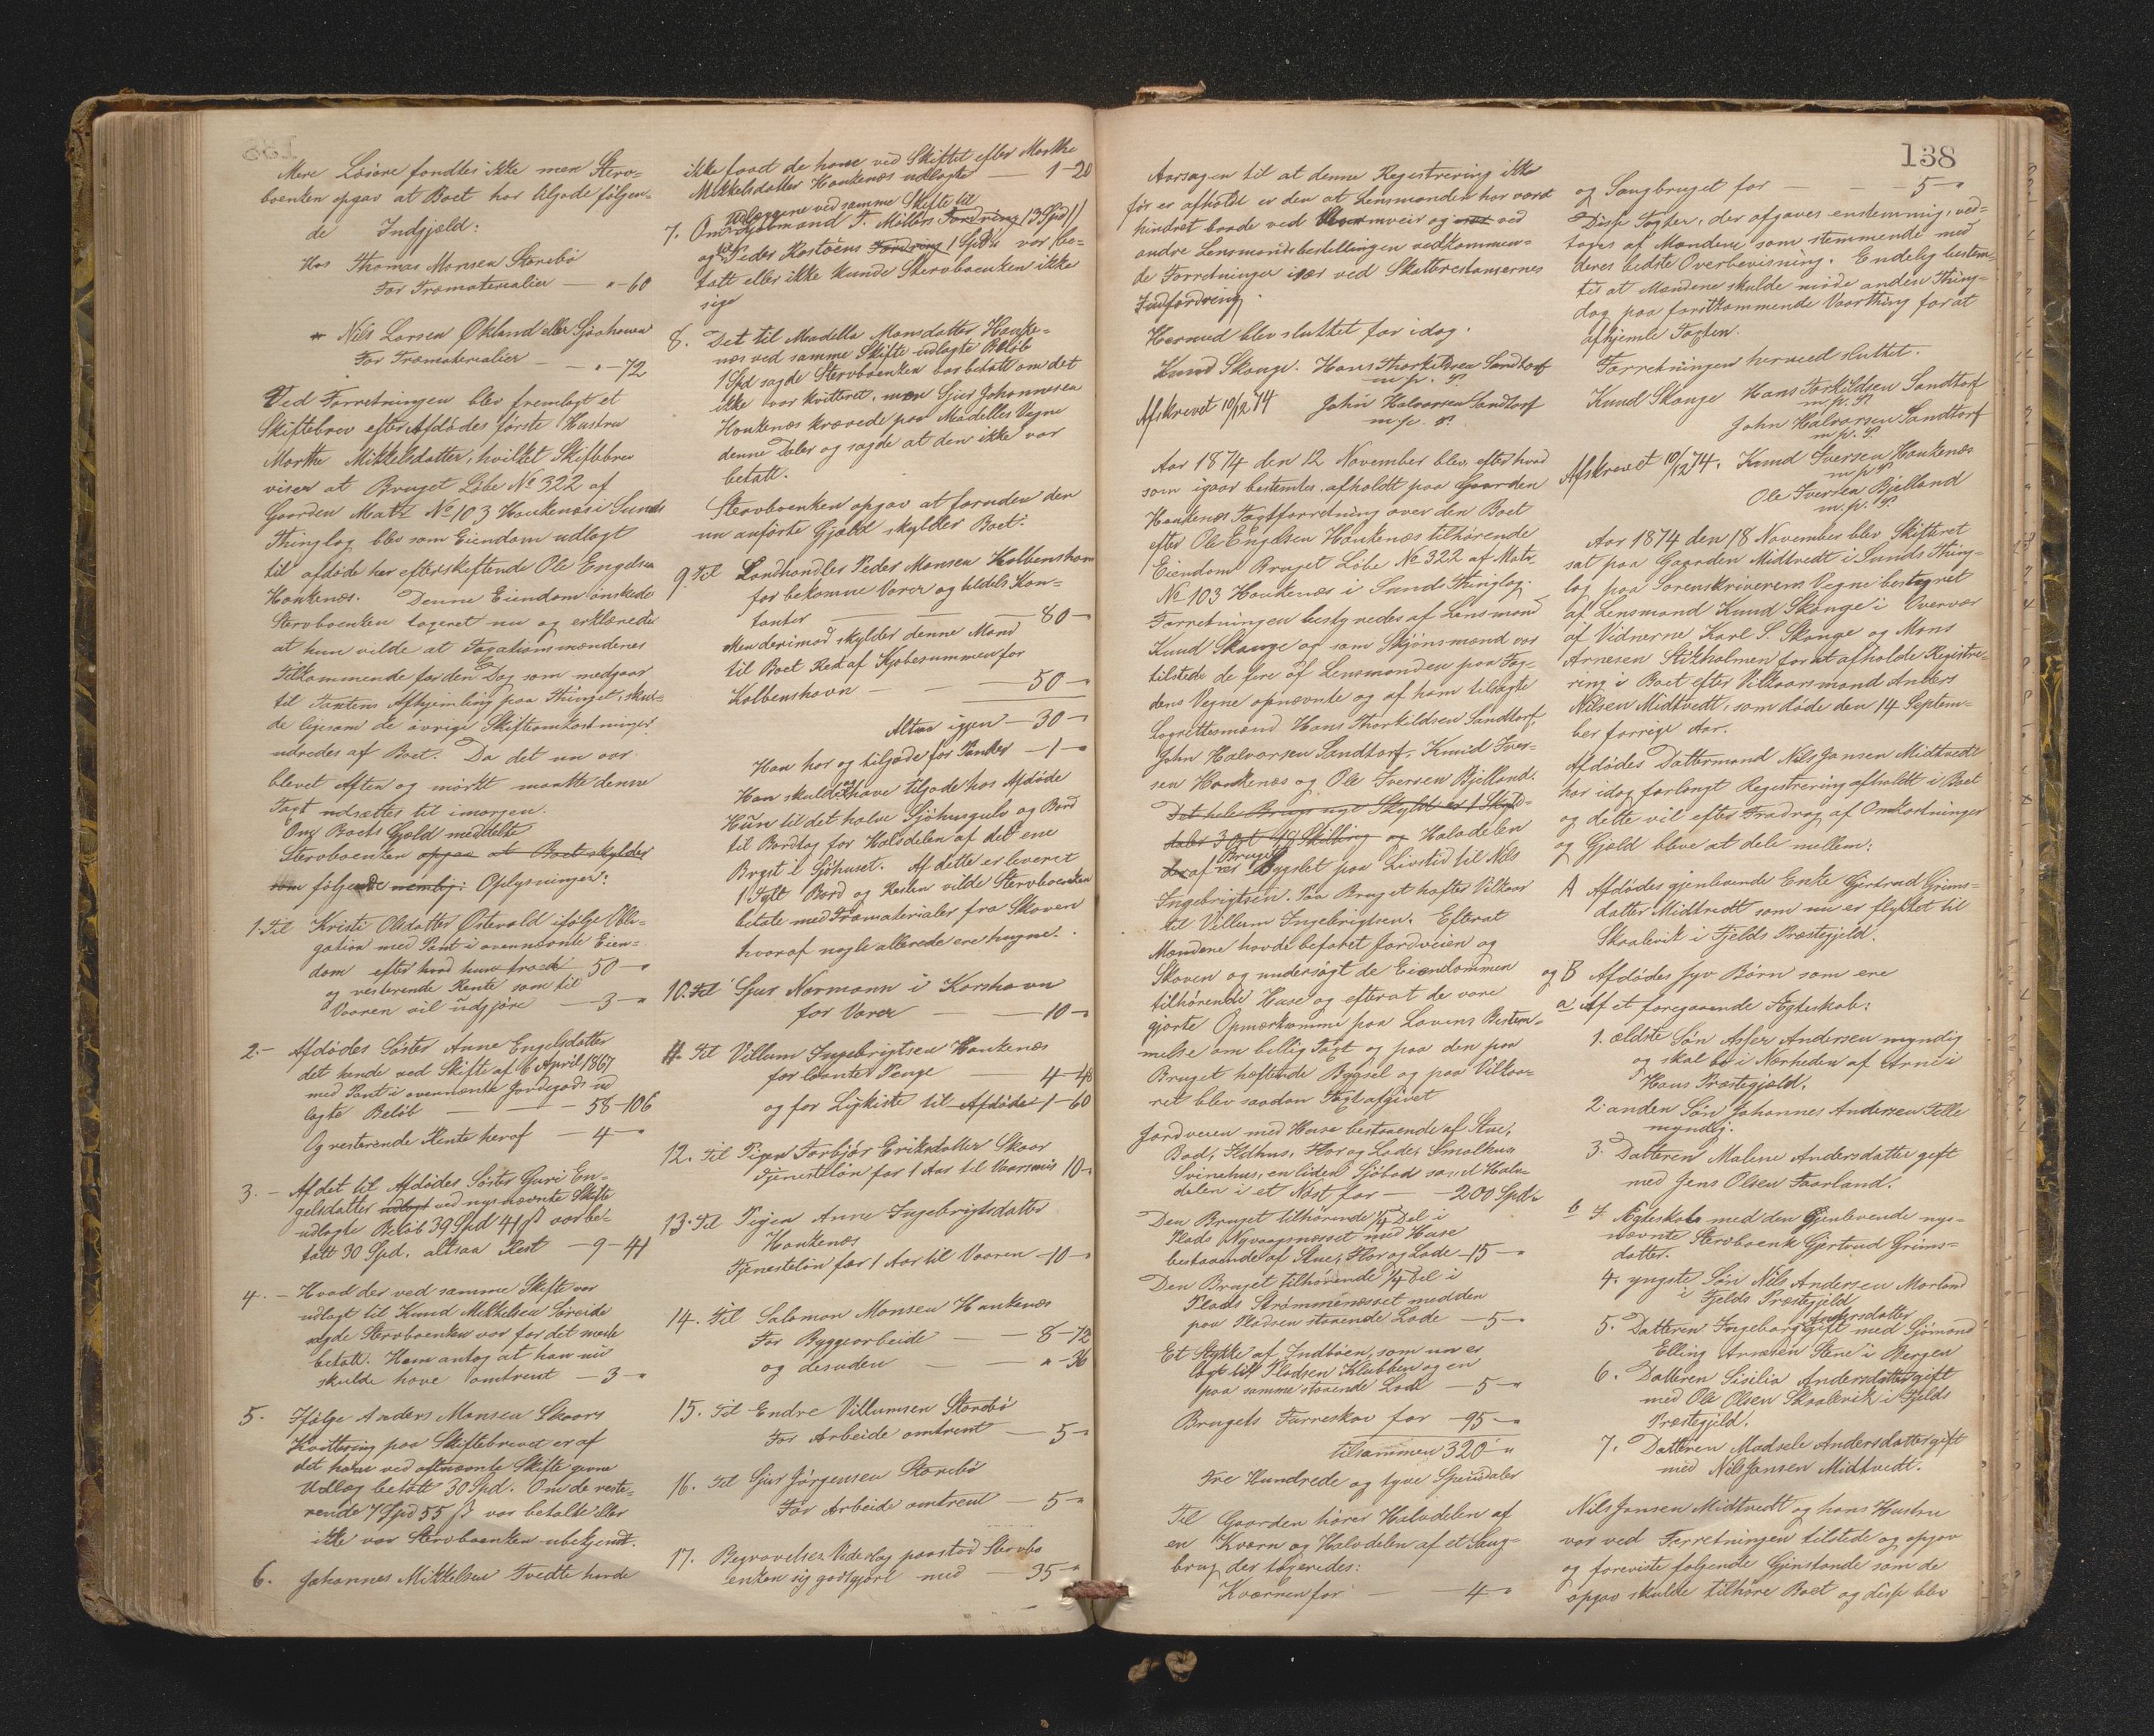 Mere Løsøre fandtes ikke men Sterv-
boenken opgav at Boet har tilgode følgen-
de Indgjæld:
Hos Thomas Monsen Storebø
For Træmaterialier — " - 60
" Nils Larsen Økland eller Sjøhaven
For Træmaterialier — " - 72
Ved Forretningen blev fremlagt et
Skiftebrev efter Afdødes første Hustru
Marthe Mikkelsdatter, hvilket Skiftebrev
viser at Bruget Løbe No 322 af
Gaarden Matr No 103 Haukenæs i Sunds
Thinglag blev som Eiendom udlagt
til afdøde her efterskiftende Ole Engelsen
Haukenæs. Denne Eiendom ønskede
Stervboenken taxeret nu og erklærede
at hun vilde at Taxationsmændenes
Tilkommende for den Dag som medgaar
til Taxtens Afhjemling paa Thinget, skul-
de ligesom de øvrige Skifteomkostninger
udredes af Boet. Da det nu var
blevet Aften og mørkt maatte denne
Taxt udsættes til imorgen.
Om Boets Gjæld meddelte
Stervboenken opgav at Boet skylder
som følgende nemlig: Oplysninger:
1. Til Kristi Olsdatter Østervold ifølge Obli-
gation med Pant i ovennævnte Eien-
dom efter hvad hun troede 50 - "
og resterende Rente som til
Vaaren vil udgjøre — 3 - "
2. - Afdødes Søster Anne Engelsdatter
det hende ved Skifte af 6 April 1867
med Pant i ovennævnte Jordegods ud
lagte Beløb — 58 - 106
Og resterende Rente heraf — 4 - "
3. - Af det til Afdødes Søster Guri En-
gelsdatter udlagt ved nysnævnte Skifte
udlagte Beløb 39 Spd 41 ß var be-
talt 30 Spd. altsaa Rest — 9 - 41
4. - Hvad der ved samme Skifte var
udlagt til Knud Mikkelsen Søreide
sagde Stervboenken var for det meste
betalt. Hun antog at han nu
skulde have omtrent — 3 - "
5. Ifølge Anders Monsen Skaars
Kvittering paa Skiftebrevet er af
det ham ved oftnævnte Skifte givne
Udlæg betalt 30 Spd. Om de reste-
rende 7 Spd 55 ß var betalte eller
ikke var Stervboenken ubekjendt.
6. Johannes Mikkelsen Tvedte havde
ikke faaet de ham ved Skiftet efter Marthe
Mikkelsdatter Haukenæs udlagte — 1 - 20
Udlæggene ved samme Skifte til
7. Om Kjøbmand T. Millers Fordring 13 Spd 11
og til Peder Rostøens Fordring 1 Spd " var be-
talt eller ikke kunde Stervboenken ikke
sige
8. Det til Madelle Monsdatter Hauke-
næs ved samme Skifte udlagte Beløb
1 Spd sagde Stervboenken var betalt om det
ikke var kvitteret, men Sjur Johannesen
Haukenæs krævede paa Madelles Vegne
denne Daler og sagde at den ikke var
betalt.
Stervboenken opgav at foruden den
nu anførte Gjæld skylder Boet:
9. Til Landhandler Peder Monsen Kolbenshavn
for bekomne Varer og tildels Kon-
tanter — 80 - "
Men derimod skylder denne Mand
til Boet Rest af Kjøbesummen for
Kolbenshavn — 50 - "
Altsaa igjen — 30 - "
Han har og tilgode for Planker — 1 - "
Han skulde og have tilgode hos Afdøde
Hun til det halve Sjøhusgulv og Bord
til Bordtag for Halvdelen af det ene
Bryst i Sjøhuset. Af dette er leveret
1 Tylt Bord og Resten vilde Stervboenken
betale med Træmaterialer fra Skoven
hvoraf nogle allerede ere hugne.
10. Til Sjur Normann i Korshavn
for Varer — 10 - "
11. Til Villum Ingebrigtsen Haukenæs
for laante Penge — 4 - 48
og for Ligkiste til Afdøde 1 - 60
12. Til Pigen Torbjør Eriksdatter Skaar
Tjenesteløn for 1 Aar til Vaaren 10 - "
13. Til Pigen Anne Ingebrigtsdatter
Haukenæs
Tjenesteløn for 1 Aar til Vaaren — 10 - "
14. Til Salomon Monsen Haukenæs
For Byggearbeide — 8 - 72
og desuden — " - 36
15. Til Endre Villumsen Storebø
For Arbeide omtrent — 5 - "
16. Til Sjur Jørgensen Storebø
For Arbeide omtrent — 5 - "
17. Begravelses Vederlag paastod Stervbo
enken sig godtgjort med — 35 - "
138
Aarsagen til at denne Registrering ikke
før er afholdt er den at Lensmanden har været
hindret baade ved Uveir og ved
andre Lensmandsbestillingen vedkommen-
de Forretninger især ved Skatterestansernes
Inddrivning.
Hermed blev sluttet for idag.
Knud Skange. Hans Thorkildsen Sandtorf
m. p. P.
Afskrevet 10/12 74 John Halvorsen Sandtorf
m. p. P.
Aar 1874 den 12 November blev efter hvad
som igaar bestemtes, afholdt paa Gaarden
Haukenæs Taxtforretning over den Boet
efter Ole Engelsen Haukenæs tilhørende
Eiendom Bruget Løbe No 322 af Matr.
No 103 Haukenæs i Sunds Thinglag.
Forretningen bestyredes af Lensmand
Knud Skange og som Skjønsmænd var
tilstede de fire af Lensmanden paa Fog-
dens Vegne opnævnte og af ham tilsagte
Lagrettesmænd Hans Thorkildsen Sandtorf,
John Halvorsen Sandtorf, Knud Iver-
sen Haukenæs og Ole Iversen Bjelland.
Det hele Brugs nye Skyld er 1 Skyld-
daler 3 Ort 48 Skilling og Halvdelen
deraf Bruget er bygslet paa Livstid til Nils
Ingebrigtsen. Paa Bruget hæfter Vilkaar
til Villum Ingebrigtsen. Efterat
Mændene havde befaret Jordveien og
Skoven og undersøgt de Eiendommen
tilhørende Huse og efterat de vare
gjorte Opmærksomme paa Lovens Bestem-
melse om billig Taxt og paa den paa
Bruget hæftende Bygsel og paa Vilkaa-
ret blev saadan Taxt afgivet
Jordveien med Huse bestaaende af Stue,
Bod, Ildhus, Flor og Lade, Smalhus
Svinehus, en liden Sjøbod samt Halv-
delen i et Nøst for — 200 Spd "
Den Bruget tilhørende 1/4 Del i
Plads Nyvaagnæsset med Huse
bestaaende af Stue, Flor og Lade — 15 - "
Den Bruget tilhørende 1/4 Del i
Plads Strømmenæsset med den
paa Pladsen staaende Lade — 5 - "
Et Stykke af Indbøen, som nu er
lagt til Pladsen Klubben og en
paa samme staaende Lade — 5 - "
Brugets Furreskov for — 95 - "
tilsammen 320 - "
Tre Hundrede og tyve Speciedaler
Til Gaarden hører Halvdelen af
en Kværn og Halvdelen af et Saug-
brug der taxeredes:
Kværnen for — 4 - "
og Saugbruget for — 5 - "
Disse Taxter, der afgaves enstemmig, ved-
toges af Mændene som stemmende med
deres bedste Overbevisning. Endelig bestem-
tes at Mændene skulde møde anden Thing-
dag paa førstkommende Vaarthing for at
afhjemle Taxten.
Forretningen hermed sluttet.
Knud Skange Hans Torkildsen Sandtorf
m. p. P.
John Halvorsen Sandtorf
m. p. P.
Afskrevet 10/12 74. Knud Iversen Haukenæs
m. p. P.
Ole Iversen Bjelland
m. p. P.
Aar 1874 den 18 November blev Skifteret
sat paa Gaarden Midtvedt i Sunds Thing-
lag paa Sorenskriverens Vegne bestyret
af Lensmand Knud Skange i Overvær
af Vidnerne Karl S. Skange og Mons
Arnesen Stikholmen for at afholde Registre-
ring i Boet efter Vilkaarsmand Anders
Nilsen Midtvedt, som døde den 14 Septem-
ber forrige Aar.
Afdødes Dattermand Nils Jansen Midtvedt
har idag forlangt Registrering afholdt i Boet
og dette vil efter Fradrag af Omkostninger
og Gjæld blive at dele mellem:
A Afdødes gjenlevende Enke Gjertrud Grims-
datter Midtvedt som nu er flyttet til
Skaalevik i Fjelds Præstegjeld.
og B Afdødes syv Børn som ere
a Af et foregaaende Ægteskab:
1. ældste Søn Asser Andersen myndig
og skal bo i Nærheden af Arne i
Haus Præstegjæld.
2. anden Søn Johannes Andersen Telle
myndig.
3. Datteren Malene Andersdatter gift
med Jens Olsen Faarland.
b I Ægteskab med den Gjenlevende nys-
nævnte Stervboenke Gjertrud Grims-
datter.
4. yngste Søn Nils Andersen Morland
i Fjelds Præstegjeld
5. Datteren Ingeborg Andersdatter gift med Sjømand
Elling Arnesen Stene i Bergen
6. Datteren Sisilia Andersdatter gift
med Ole Olsen Skaalevik i Fjelds
Præstegjeld.
7. Datteren Madsele Andersdatter gift
med Nils Jansen Midtvedt.
Nils Jansen Midtvedt og hans Hustru
var ved Forretningen tilstede og opgav
og foreviste følgende Gjenstande som de
opgav skulde tilhøre Boet og disse blev